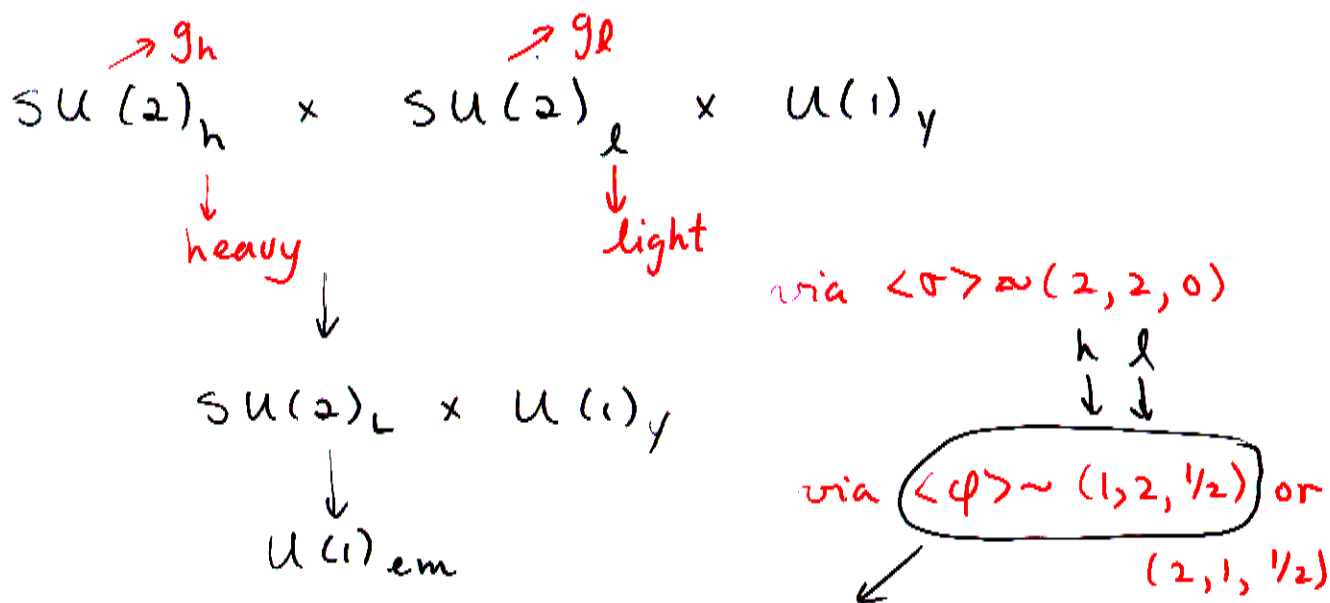 g_h g_l
SU(2)_h × SU(2)_l × U(1)_y
heavy light
via <σ> ~ (2, 2, 0)
h l
SU(2)_L × U(1)_y
via <φ> ~ (1, 2, 1/2) or
(2, 1, 1/2)
U(1)_em